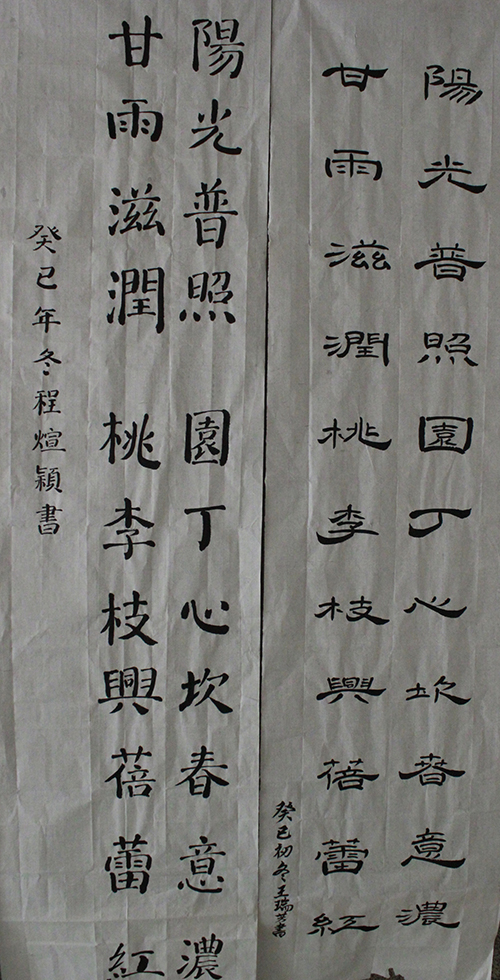 陽光普照園丁心坎春意濃
甘雨滋潤桃李枝興蓓蕾紅
癸巳初冬王瑞芳書
陽光普照園丁心坎春意濃
甘雨滋潤桃李枝興蓓蕾紅
癸巳年冬程煊穎書